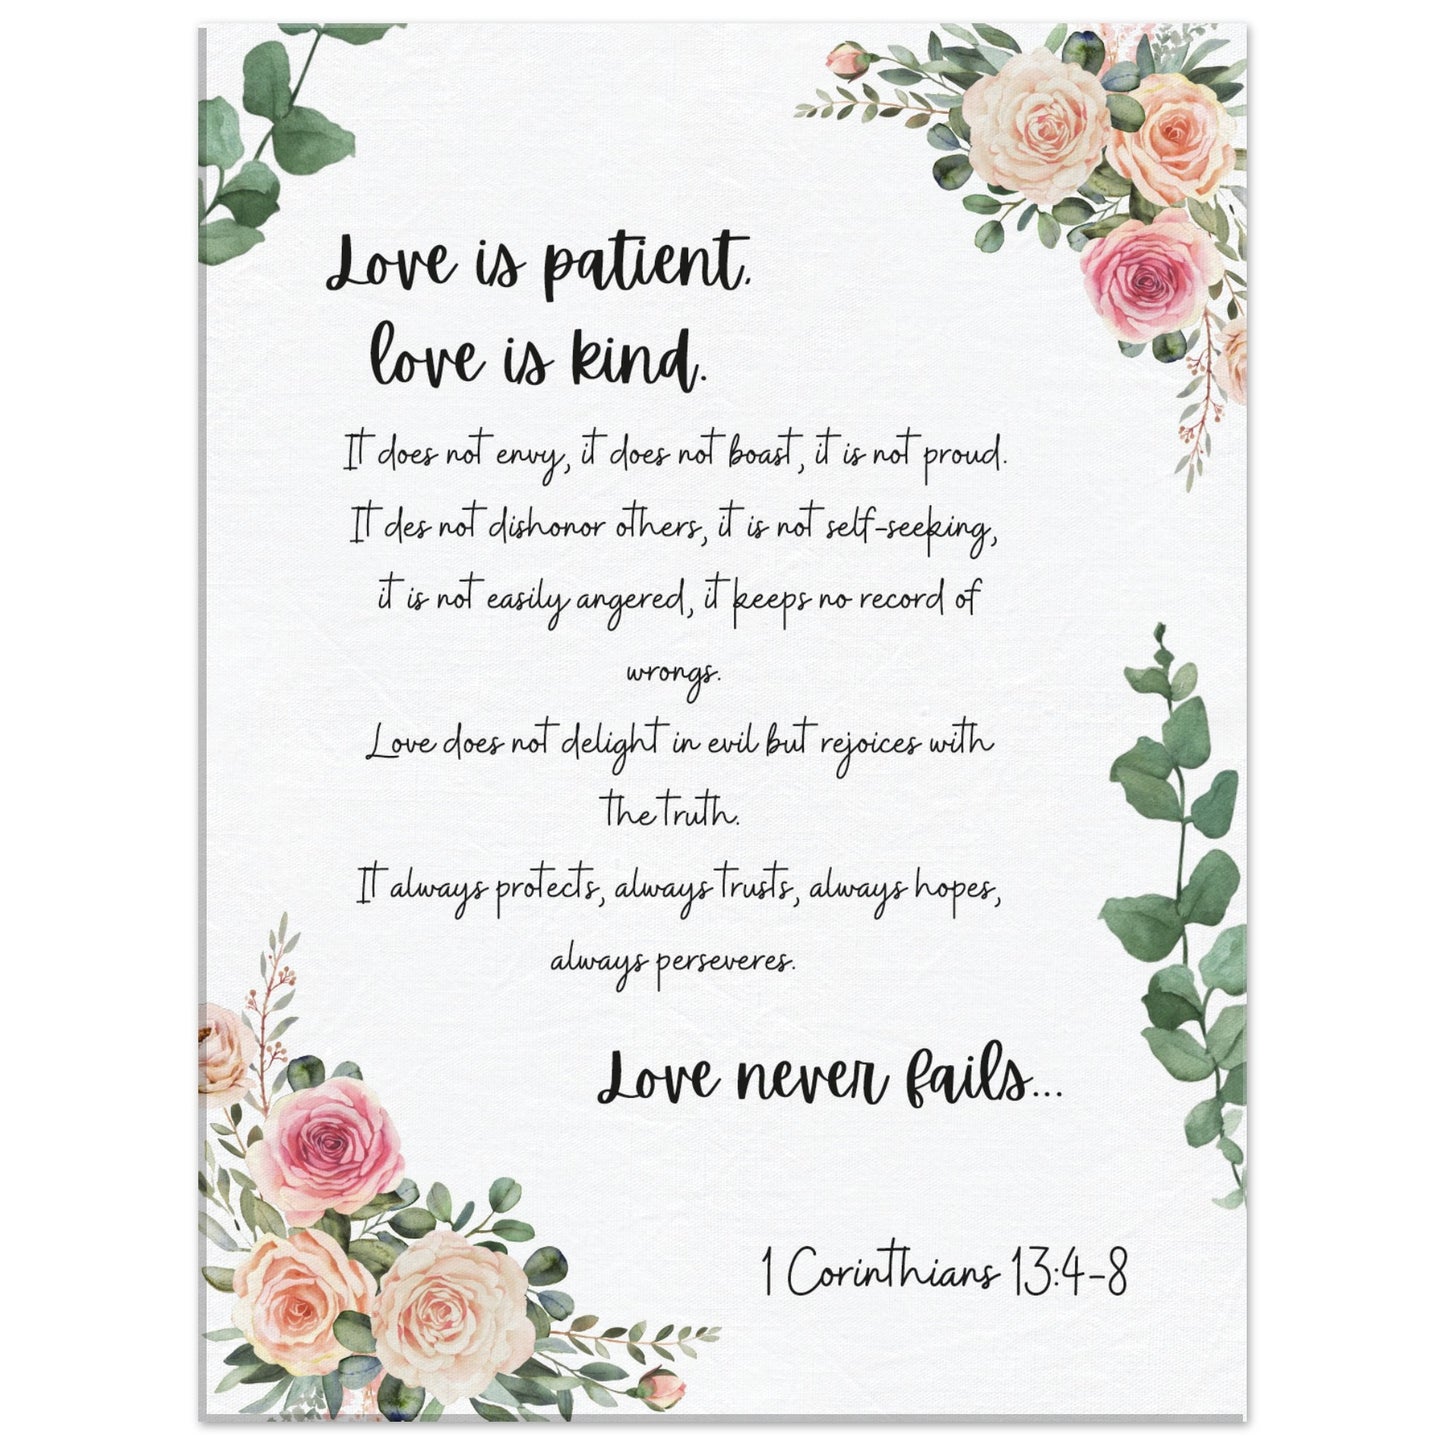 Love is patient,
love is kind.
It does not envy, it does not boast, it is not proud.
It des not dishonor others, it is not self-seeking,
it is not easily angered, it keeps no record of
wrongs.
Love does not delight in evil but rejoices with
the truth.
It always protects, always trusts, always hopes,
always perseveres.
Love never fails...
1 Corinthians 13:4-8